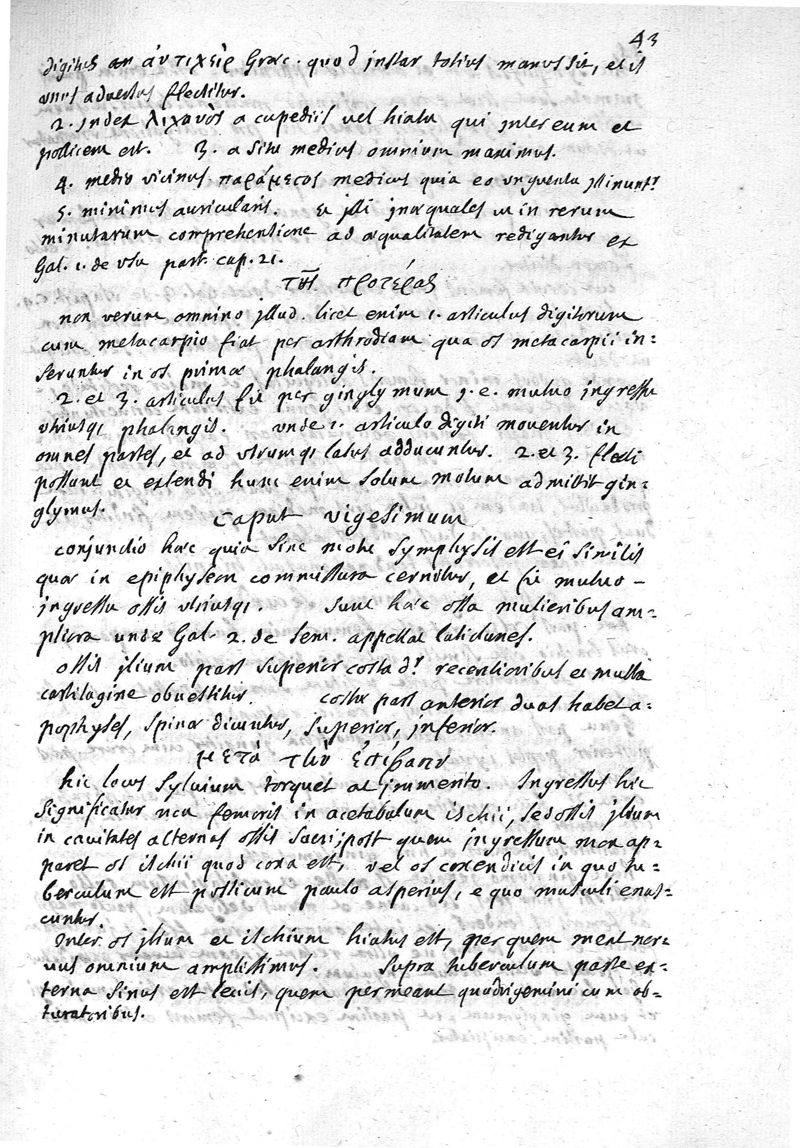 43
digitus an ἀντιχεὶρ Græc. quod instar totius manus sit, et is
unus adversus flectitur.
2. index λιχανὸς a cupediis vel hiatu qui inter eum et
pollicem est. 3. a situ medius omnium maximus.
4. medio vicinus παράμεσος medicus quia eo unguenta illinunt.r
5. minimus auricularis. et illi inæquales ut in rerum
minutarum comprehensione ad æqualitatem redigantur ex
Gal. 1. de usu part. cap. 21.
τῆς προτέρας
non verum omnino illud. licet enim 1. articulus digitorum
cum metacarpio fiat per arthrodiam qua os metacarpii in=
seruntur in os primæ phalangis.
2. et 3. articulus fit per ginglymum i. e. mutuo ingressu
utriusq; phalangis. unde 1. articulo digiti moventur in
omnes partes, et ad utrumq; latus adducuntur. 2. et 3. flecti
possunt et extendi hunc enim solum motum admittit gin=
glymus.
Caput vigesimum
conjunctio hæc quia sine motu symphysis est ei similis
quæ in epiphyseon commissura cernitur, et fit mutuo -
ingressu ossis utriusq;. sunt hæc ossa mulieribus am=
pliora unde Gal. 2. de sem. appellat laticlunes.
ossis ilium pars superior costa d.r recentioribus et multa
cartilagine obvestitur. costæ pars anterior duas habet a=
pophyses, spinæ dicuntur, superior, inferior.
μετὰ τὴν ἐπίβασιν
hic locus Sylvium torquet at immerito. Ingressus hic
significatur non femoris in acetabulum ischii, sed ossis ilium
in cavitates alternas ossis sacri; post quem ingressum mox ap=
paret os ischii quod coxa est, vel os coxendicis in quo tu=
berculum est posticum paulo asperius, e quo musculi enas=
cuntur.
Inter os ilium et ischium hiatus est, per quem meat ner=
vus omnium amplissimus. Supra tuberculum parte ex=
terna sinus est levis, quem permeant quadrigemini cum ob=
turatoribus.